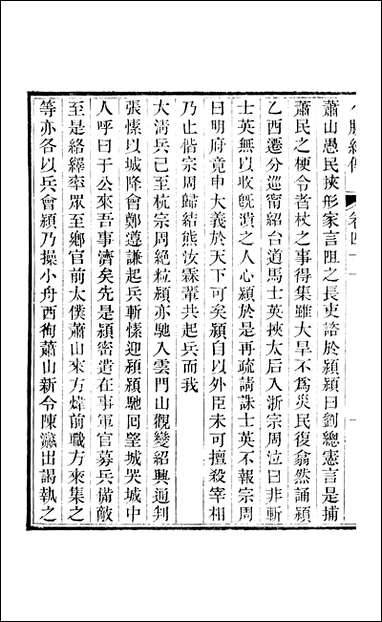 小腆紀傳
卷四十
蕭山愚民挾形家言阻之長吏諮於潁潁曰劉總憲言是捕
蕭民之梗令者杖之事得集雖大旱不為災民復翕然誦潁
乙酉遷分巡甯紹台道馬士英挾太后入浙宗周泣曰非斬
士英無以收旣潰之人心潁於是再疏請誅士英不報宗周
曰明府竟申大義於天下可矣潁自以外臣未可擅殺宰相
乃止偕宗周歸結熊汝霖輩共起兵而我
大淸兵已至杭宗周絕粒潁亦馳入雲門山觀變紹興通判
張愫以城降會鄭遵謙起兵斬愫迎潁潁馳回望城哭城中
人呼曰于公來吾事濟矣先是潁密遣在事軍官募兵備敵
至是絡繹率眾至鄉官前太僕蕭山來方煒前職方來集之
等亦各以兵會潁乃操小舟西徇蕭山新令陳瀛出謁執之